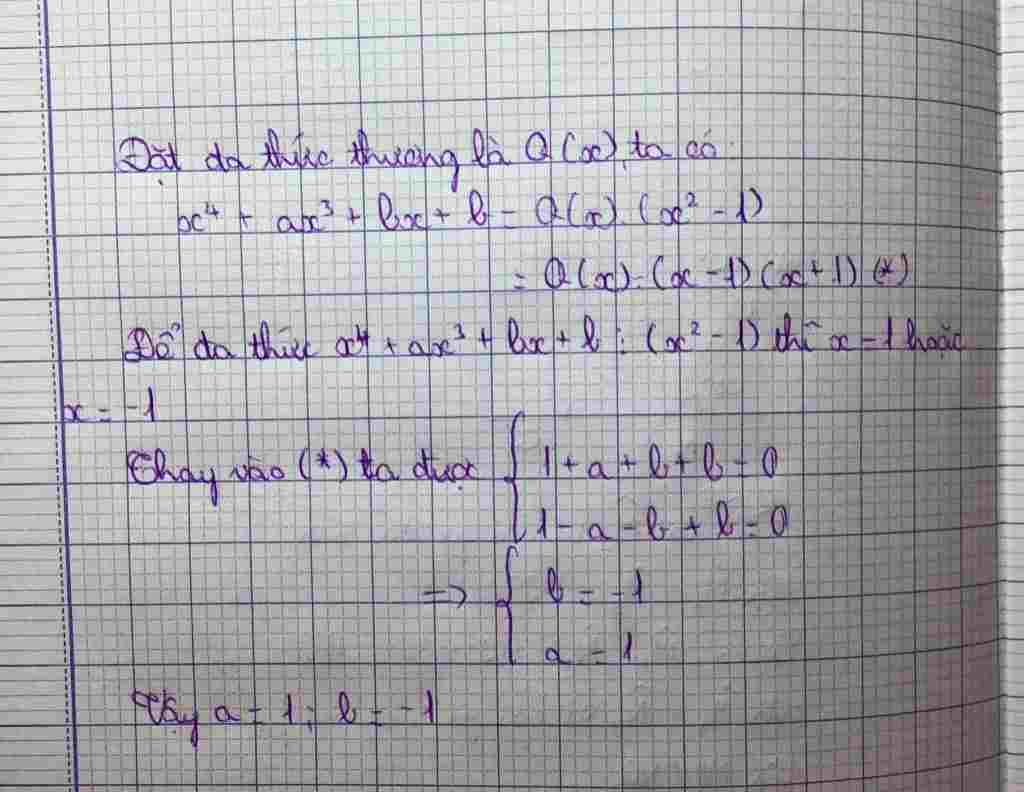 Đặt đa thức thương là Q(x), ta có
x⁴ + ax³ + bx + b = Q(x). (x² - 1)
= Q(x). (x - 1) (x + 1) (*)
Để đa thức x⁴ + ax³ + bx + b : (x² - 1) thì x = 1 hoặc
x = -1
Thay vào (*) ta được { 1 + a + b + b = 0
1 - a - b + b = 0
=> { b = -1
a = 1
Vậy a = 1; b = -1